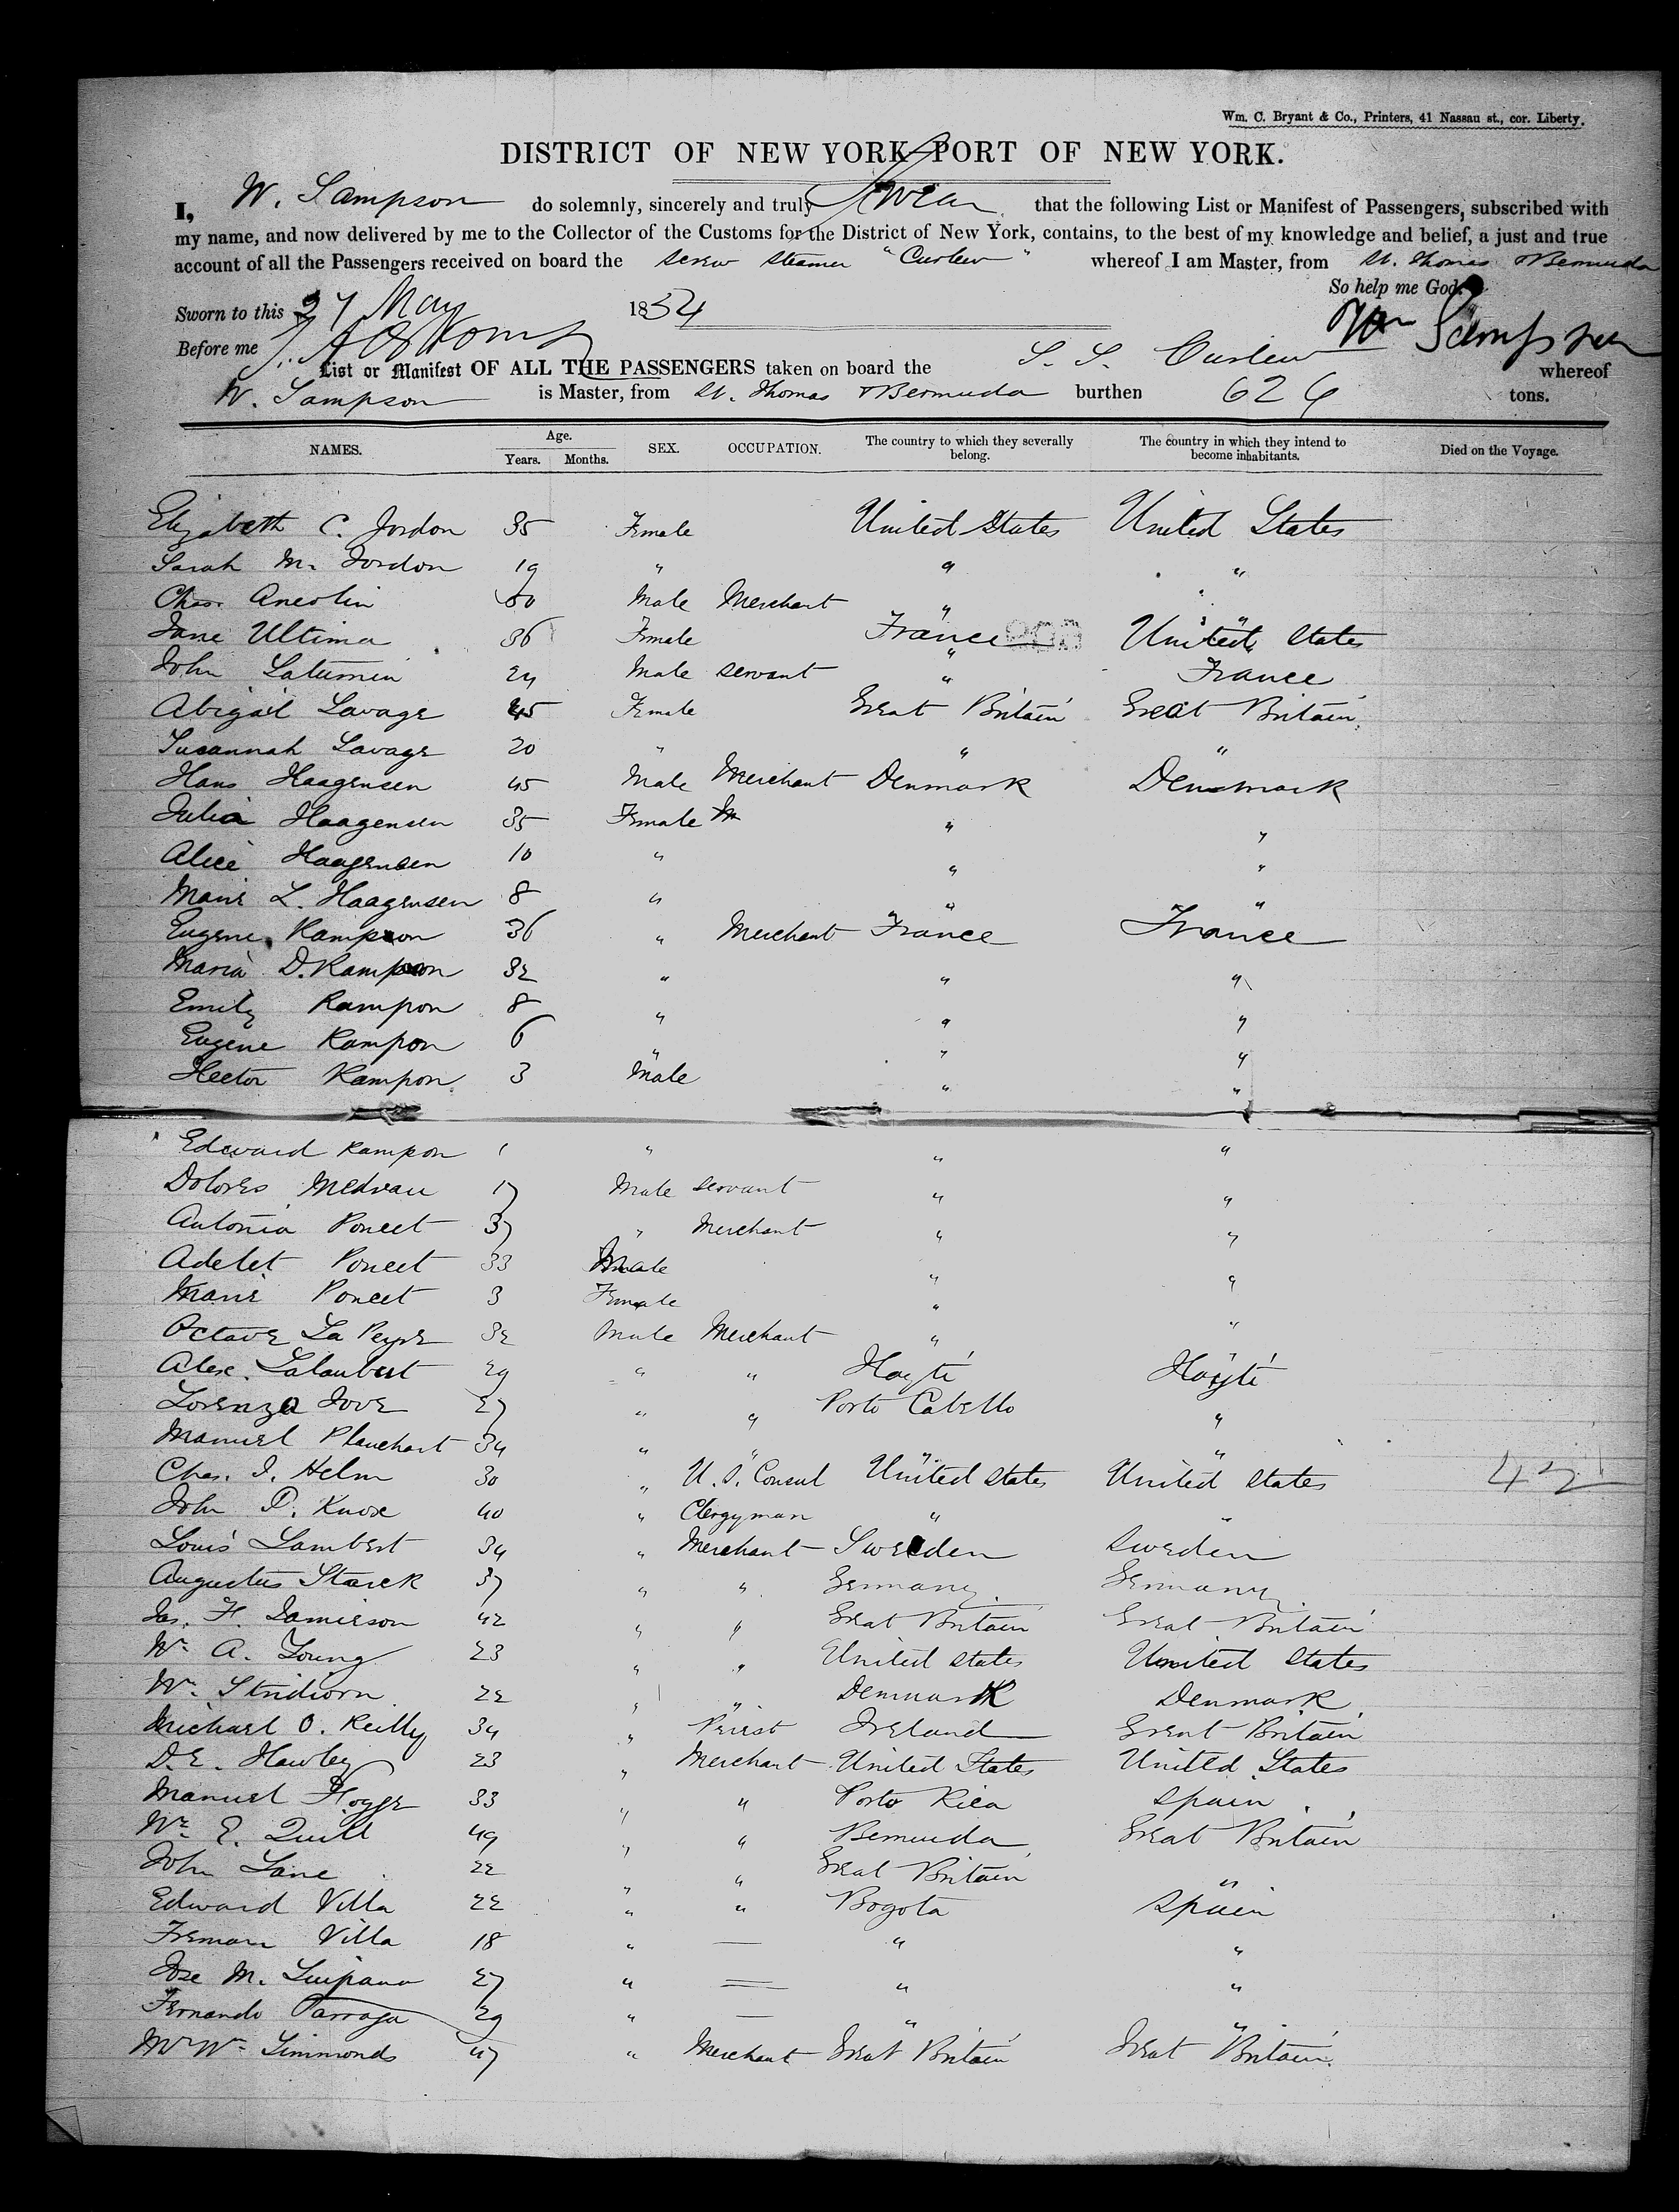 Wm. C. Bryant & Co., Printers, 41 Nassau st., cor. Liberty.
DISTRICT OF NEW YORK—PORT OF NEW YORK.
I, W. Sampson do solemnly, sincerely and truly Swear that the following List or Manifest of Passengers, subscribed with
my name, and now delivered by me to the Collector of the Customs for the District of New York, contains, to the best of my knowledge and belief, a just and true
account of all the Passengers received on board the Screw Steamer "Curlew" whereof I am Master, from St. Thomas & Bermuda
So help me God.
Sworn to this 27 May 1854
Wm Sampson
Before me
List or Manifest OF ALL THE PASSENGERS taken on board the S. S. Curlew whereof
W. Sampson is Master, from St. Thomas & Bermuda burthen 626 tons.
NAMES. Age. Years. Months. SEX. OCCUPATION. The country to which they severally belong. The country in which they intend to become inhabitants. Died on the Voyage.
Elizabeth C. Jordon 35 Female United States United States
Sarah M. Jordon 19 " " "
Chas. 50 Male Merchant " "
Jane Ultima 36 Female France United States
John Latumin 24 Male Servant " France
Abigail Savage 45 Female Great Britain Great Britain
Susannah Savage 20 " " "
Hans Haagensen 45 Male Merchant Denmark Denmark
Julia Haagensen 35 Female " "
Alice Haagensen 10 " " "
Marie L. Haagensen 8 " " "
Eugene Rampon 36 " Merchant France France
Maria D. Rampon 32 " " "
Emily Rampon 8 " " "
Eugene Rampon 6 " " "
Hector Rampon 3 Male " "
Edward Rampon 1 " " "
Dolores 17 Male Servant " "
Antonia Poncet 37 " Merchant " "
Adelet Poncet 33 Male " "
Marie Poncet 3 Female " "
Octave La Peyre 32 Male Merchant " "
Alex. Lalaubert 29 " " Hayti Hayti
Lorenzo Jove 27 " " Porto Cabello "
Manuel Planchart 34 " " " "
Chas. J. Helm 30 " U. S. Consul United States United States 42
John P. Knox 40 " Clergyman " "
Louis Lambert 34 " Merchant Sweden Sweden
Augustus Starck 37 " " Germany Germany
Jas. H. Jamieson 42 " " Great Britain Great Britain
Wm A. Young 23 " " United States United States
Wm Stridiorn 22 " " Denmark Denmark
Michael O. Reilly 34 " Priest Ireland Great Britain
D. E. Hawley 23 " Merchant United States United States
Manuel 33 " " Porto Rica Spain
Wm E. Quill 49 " " Bermuda Great Britain
John Lane 22 " " Great Britain "
Edward Villa 22 " " Bogota Spain
Villa 18 " — " "
Jose M. 27 " — " "
Fernando Parraga 29 " — " "
Mr Wm Simmonds 47 " Merchant Great Britain Great Britain